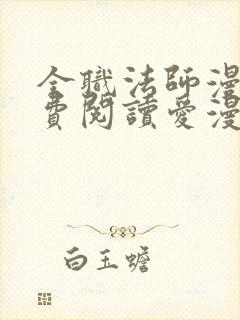 全職法師漫
費閱讀愛漫
白玉蟾